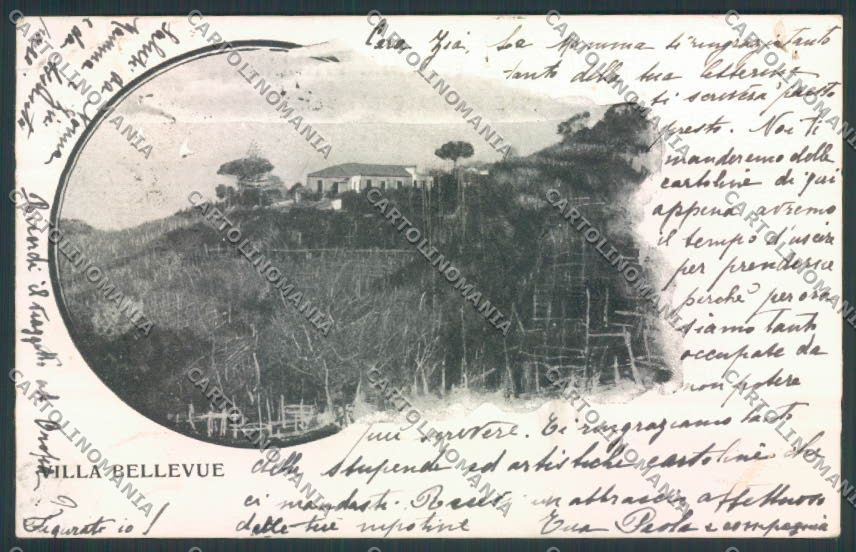 Cara Zia, La Mamma ti ringrazia tanto
tanto della tua letterina
ti scriverà presto
presto. Noi ti
manderemo delle
cartoline di qui
appena avremo
il tempo d'uscire
per prendersa
perchè per ora
siamo tanto
occupate da
non potere
più scrivere. Ti ringraziamo tanto
delle stupende ed artistiche cartoline che
ci mandasti. Ricevi un abbraccio affettuoso
dalle tue nipotine Tua Paola e compagnia
Saluti da Nonna
Mamma Zii
e da
Quindi il tragetto
Figurati io!
VILLA BELLEVUE
CARTOLINOMANIA